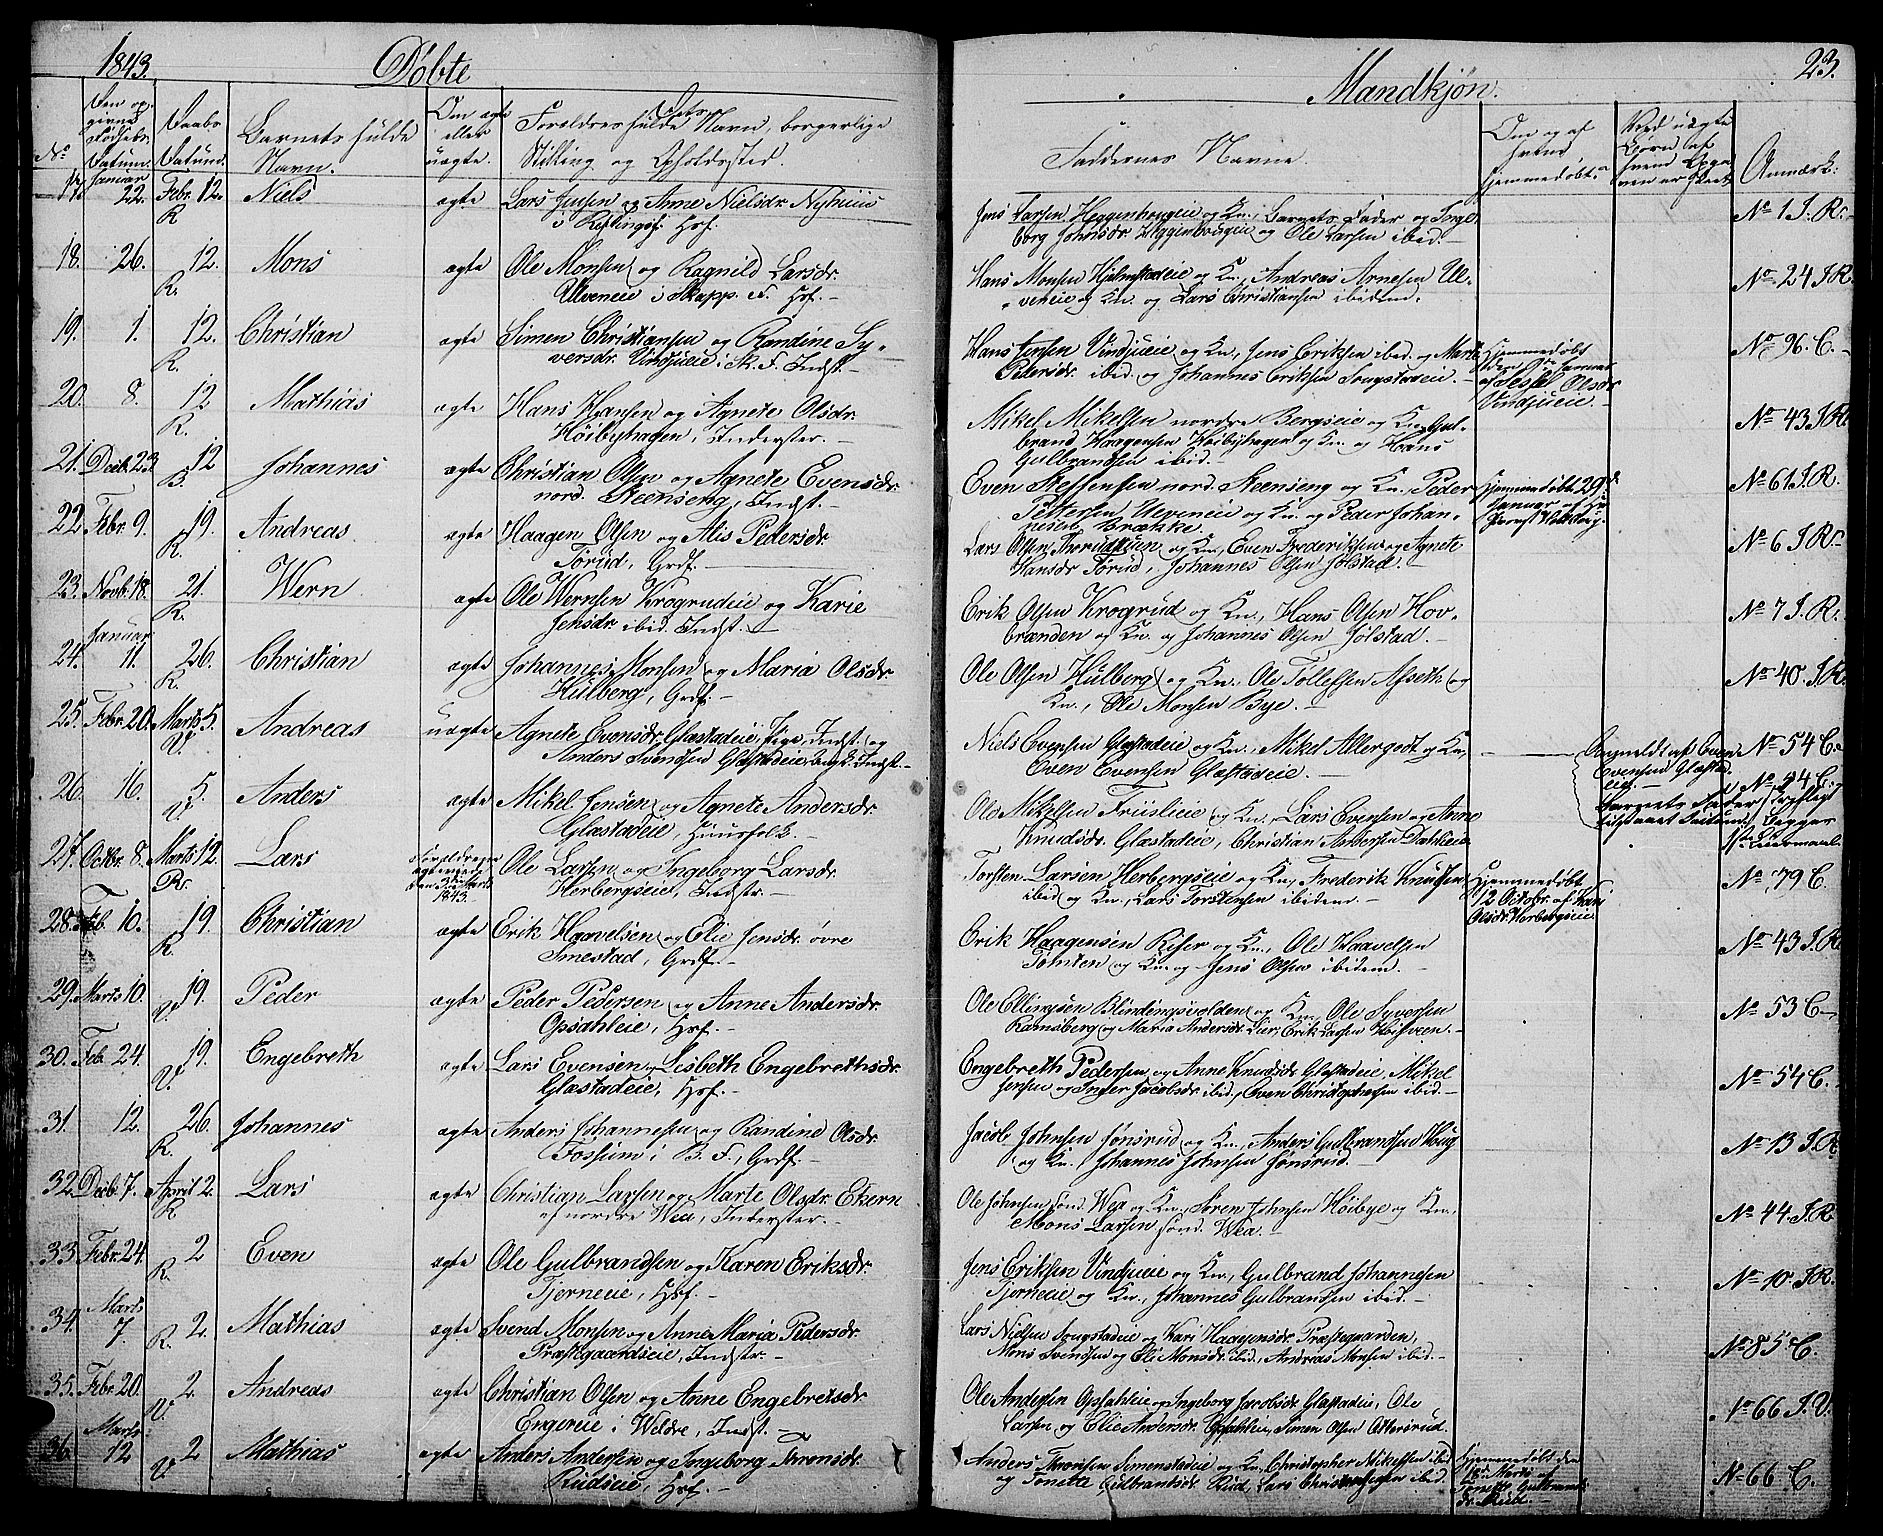 1843. Døbte
Mandkjøn. 23.
No
Den op-
givne
Fødsels
Datum.
Daabs
Datum.
Barnets fulde
Navn.
Om ægte
eller
uægte.
Forældres fulde Navn, borgerlige
Stilling og Opholdssted.
Faddernes Navne.
Om og af
hvem
hjemmedøbt.
Ved uægte
Børn af
hvem Opga
ven er skeet
Anmærk:
17. Januar 22. Febr. 12. R. Niels ægte Lars Jensen og Anne Nielsdr. Nyhuus
Hsf.
Jens Larsen Heggenhougeie og Kn., Barnets Fader og Inge
borg Johnsdr. Heggenhougeie og Ole Larsen ibid.
No 1 J. R.
18. 26. 12. R. Mons ægte Ole Monsen og Ragnild Larsdr.
Ulveneie i Skapp. F. Hsf.
Hans Monsen Hjelmstadeie og Kn., Andreas Arnesen Ul-
veneie og Kn. og Lars Christiansen ibidem.
No 24 J. R.
19. 1. 12. R. Christian ægte Simen Christiansen og Randine Sy-
versdr. Vindjueie i Sk. F. Indst.
Hans Jensen Vindjueie og Kn., Jens Eriksen ibid. og Marte
Pedersdr. ibid. og Johannes Eriksen Sougstadeie.
Hjemmedøbt
den Januar
af Sessel Olsdr.
Vindjueie.
No 96. C.
20. 8. 12 R. Mathias ægte Hans Hansen og Agnete Olsdr.
Høibyhagen, Inderster.
Mikel Mikelsen nordre Bergseie og Kn., Gul-
brand Haagensen Høibyhagen og Kn. og Hans
Gulbrandsen ibid.
No 43 J. R.
21. Decbr. 23 12 R. Johannes ægte Christian Olsen og Agnete Evensdr.
nord. Steenseng, Indst.
Even Steffensen nord. Steenseng og Kn., Peder
Pettersen Ulveneie og Kn. og Peder Johan-
nesen Brække.
Hjemmedøbt 29d
Januar af
No 61 J. R.
22. Febr. 9. 19. R. Andreas ægte Haagen Olsen og Alis Pedersdr.
Tørud, Grdf.
Lars Olsen og Kn., Even Frederiksen og Agnete
Hansdr Tørud, Johannes Olsen Jølstad.
No 6 J. R.
23. Novb. 18. 21. R. Wern ægte Ole Wernsen Krogrudeie og Karie
Jensdr. ibid. Indst.
Erik Olsen Krogrud og Kn., Hans Olsen Hov-
branden og Kn. og Johannes Olsen Jølstad.
No 7 J. R.
24. Januar 11. 26. R. Christian ægte Johannes Monsen og Maria Olsdr.
Hulberg, Grdf.
Ole Olsen Hulberg og Kn., Ole Tollefsen Asseth og
Kn., Ole Monsen Bye.
No 40. J. R.
25. Febr. 20. Marts 5. V. Andreas uægte Agnete Evensdr. Glæstadeie, Pige, Indst. og
Anders Svendsen Glæstadeie, Indst.
Niels Evensen Glæstadeie og Kn., Mikel Allergodt og Kn.,
Even Evensen Glæstadeie.
Anmeldt af Even
Evensen Glæstad-
eie.
No 54 C.
26. 16. 5. V. Anders ægte Mikel Jensen og Agnete Andersdr.
Glæstadeie, Huusfolk.
Ole Mikelsen Friislieie og Kn., Lars Evensen og Anne
Knudsdr. Glæstadeie, Christian Andersen Dæhlieie
No 44 C.
Barnets Fader
27. Octbr. 8. Marts 12. R. Lars Forældrene
ægteviede
1843. Ole Larsen og Ingeborg Larsdr.
Herbergseie, Indstr.
Torsten Larsen Herbergseie og Kn., Frederik Knudsen
ibid. og Kn., Lars Torstensen ibidem.
Hjemmedøbt
12 Octobr. af Kari
Olsdr. Herbergseie
No 79 C.
28. Feb. 10. 19. R. Christian ægte Erik Haavelsen og Elie Jensdr. øvre
Smestad, Grdf.
Erik Haagensen Riser og Kn., Ole Haavelsen
Tomten og Kn. og Jens Olsen ibidem.
No 43 J. R.
29. Marts 10. 19. V. Peder ægte Peder Pedersen og Anne Andersdr.
Opsahleie, Hsf.
Ole Ellingsen Blindingsvolden og Kn., Ole Syversen
Ramsberg og Maria Andersdr. Lier, Erik Larsen Høisveen.
No 53 C.
30. Feb. 24. 19. V. Engebreth ægte Lars Evensen og Lisbeth Engebrethsdr.
Glæstadeie, Hsf.
Engebreth Pedersen og Anne Knudsdr. Glæstadeie, Mikel
Jensen og Inger Jacobsdr. ibid., Even Christophersen ibid.
No 54 C.
31. 12. 26. R. Johannes ægte Anders Johannesen og Randine Olsdr.
Fossum i B. F., Grdf.
Jacob Johnsen Jønsrud og Kn., Anders Gulbrandsen Houg
og Kn. Johannes Johnsen Jønsrud.
No 13 J. R
32. Decbr. 7. April 2. R. Lars ægte Christian Larsen og Marte Olsdr. Ekern
af nordre Wea, Inderster.
Ole Johnsen sønd. Wea og Kn., Søren Johnsen Høibye og Kn.,
Mons Larsen, sønd. Wea.
No 44. J. R.
33. Febr. 24. 2 R. Even ægte Ole Gulbrandsen og Karen Eriksdr.
Tjerneie, Hsf.
Jens Eriksen Vindjueie og Kn., Gulbrand Johannesen
Tjerneie og Kn., Johannes Gulbransen ibid.
No 10. J. R.
34. Marts 7 2. R. Mathias ægte Svend Monsen og Anne Maria Pedersdr.
Præstgaardseie, Indstr.
Lars Nielsen Sougstadeie og Kari Haagensdr. Præstegaarden,
Mons Svendsen og Eli Monsdr. ibid., Andreas Monsen ibid.
No 85 C.
35. Febr. 20. 2. V. Andreas ægte Christian Olsen og Anne Engebretsdr.
Engereie i Veldre, Indst.
Ole Andersen Opsahleie og Ingeborg Jacobsdr. Glæstadeie, Ole
Larsen og Elie Andersdr. Opsahleie, Simen Olsen Ottersrud.
No 66 J. V.
36. Marts 12 2 V. Mathias ægte Anders Andersen og Ingeborg Thronsdr.
Rudseie, Hsf.
Anders Thronsen Simenstadeie og Kn., Christopher Mikelsen ibid
og Tonette Gulbrandsdr. Rud, Lars Christophersen ibid.
Hjemmedøbt den
18. Marts af
Tonette Gulbrands
dr. Rud.
No 66 C.